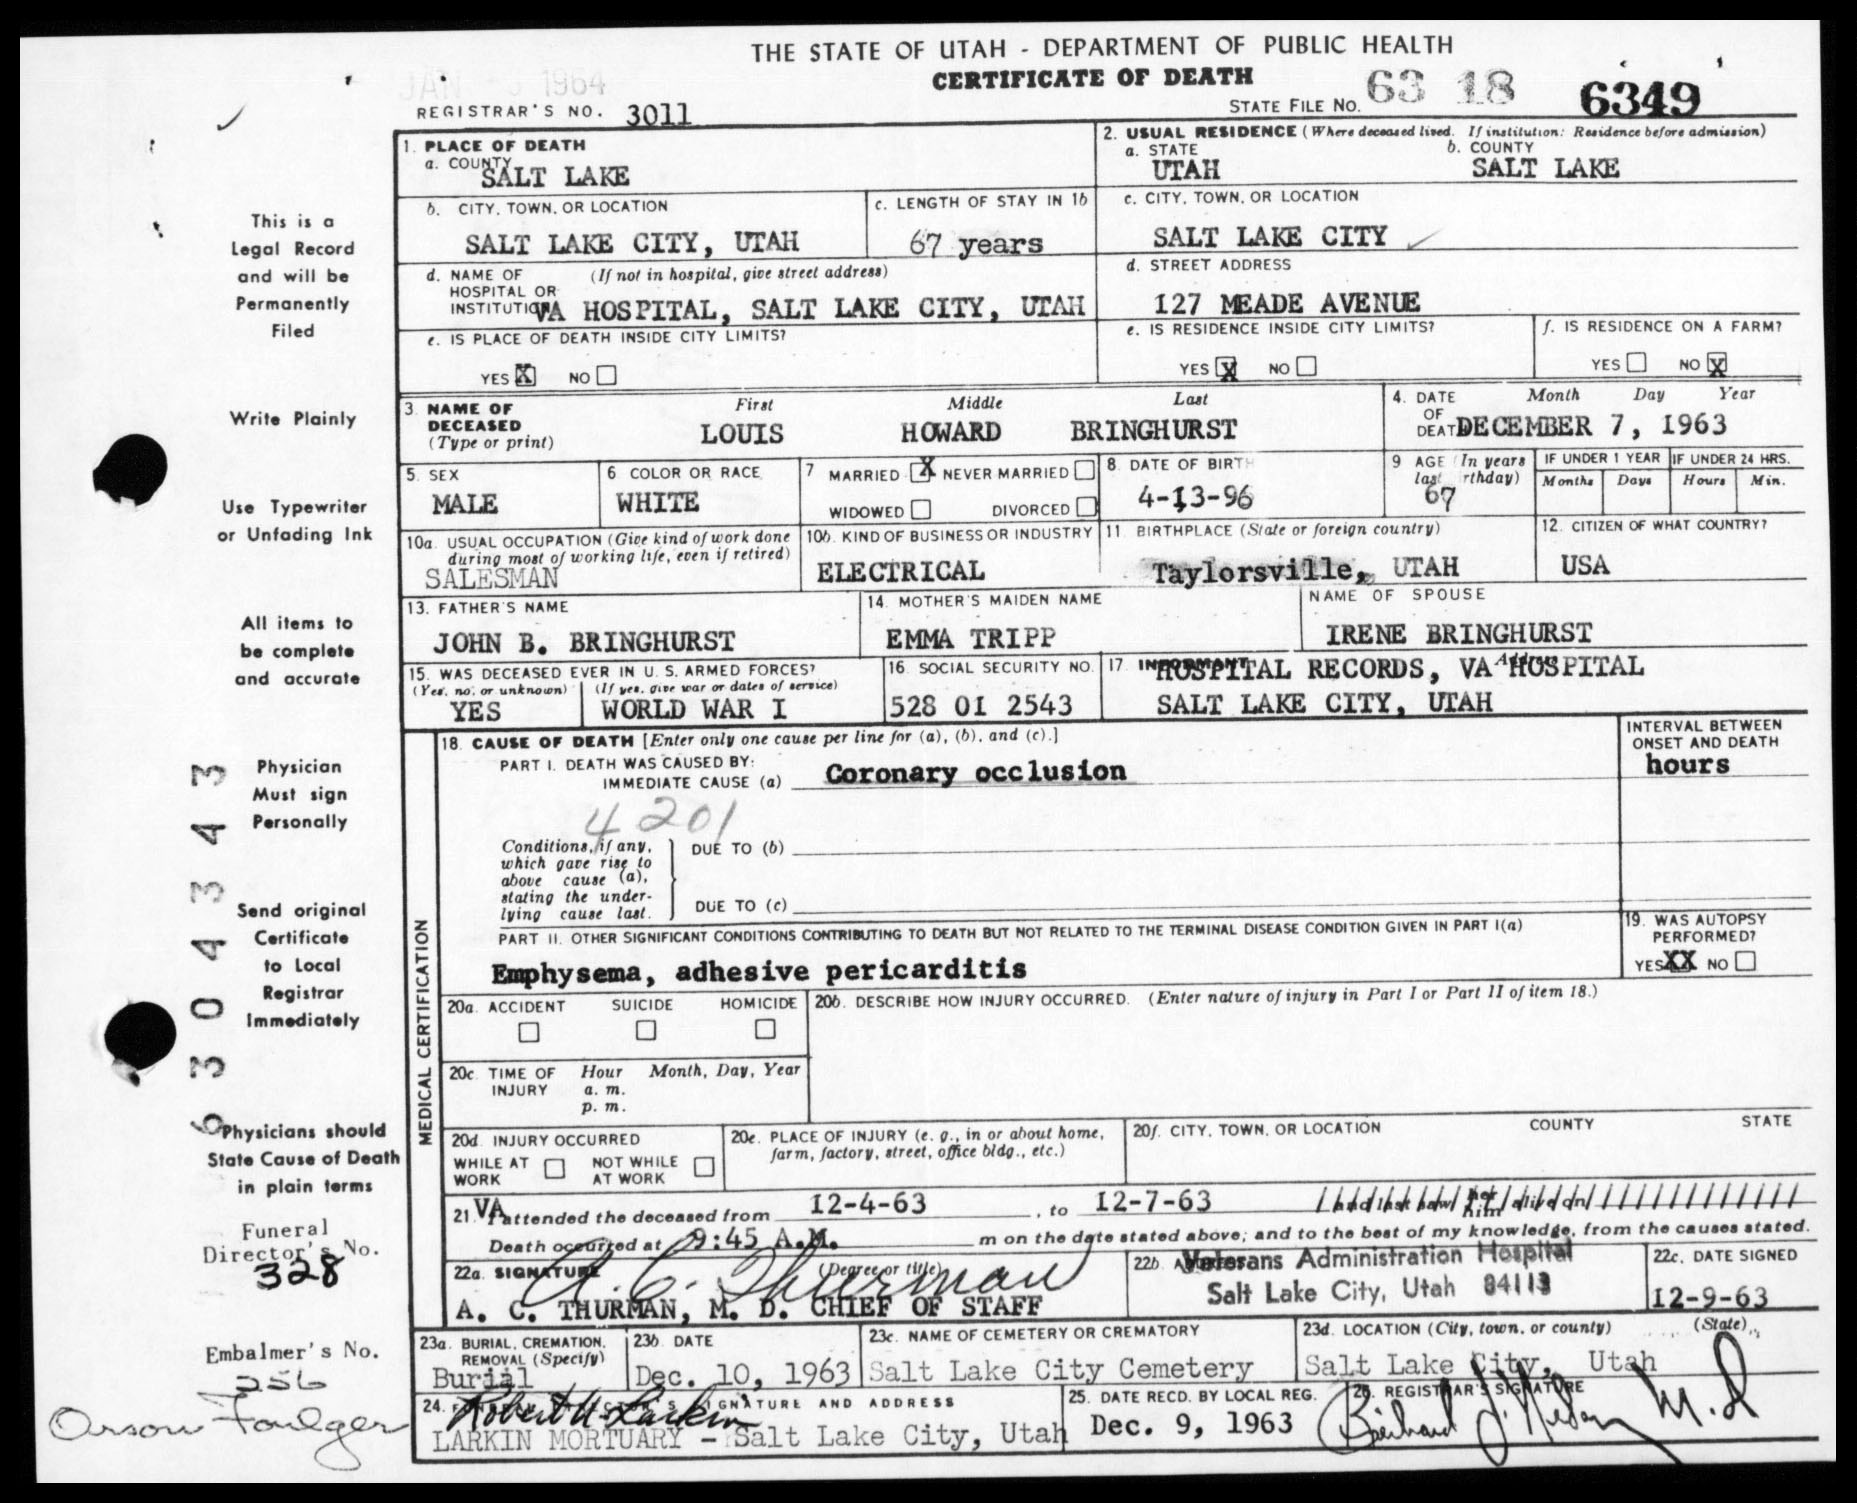 THE STATE OF UTAH - DEPARTMENT OF PUBLIC HEALTH
JAN 1964
CERTIFICATE OF DEATH
REGISTRAR'S NO. 3011
STATE FILE NO. 63 18 6349
1. PLACE OF DEATH
a. COUNTY
SALT LAKE
2. USUAL RESIDENCE (Where deceased lived. If institution: Residence before admission)
a. STATE
UTAH
b. COUNTY
SALT LAKE
b. CITY, TOWN, OR LOCATION
SALT LAKE CITY, UTAH
c. LENGTH OF STAY IN 1b
67 years
c. CITY, TOWN, OR LOCATION
SALT LAKE CITY
d. NAME OF (If not in hospital, give street address)
HOSPITAL OR
INSTITUTION VA HOSPITAL, SALT LAKE CITY, UTAH
d. STREET ADDRESS
127 MEADE AVENUE
e. IS PLACE OF DEATH INSIDE CITY LIMITS?
YES X NO
e. IS RESIDENCE INSIDE CITY LIMITS?
YES X NO
f. IS RESIDENCE ON A FARM?
YES NO X
3. NAME OF DECEASED (Type or print)
First Middle Last
LOUIS HOWARD BRINGHURST
4. DATE OF DEATH
Month Day Year
DECEMBER 7, 1963
5. SEX
MALE
6. COLOR OR RACE
WHITE
7 MARRIED X NEVER MARRIED
WIDOWED DIVORCED
8. DATE OF BIRTH
4-13-96
9 AGE (In years
last birthday)
67
IF UNDER 1 YEAR
Months Days
IF UNDER 24 HRS.
Hours Min.
10a. USUAL OCCUPATION (Give kind of work done
during most of working life, even if retired)
SALESMAN
10b. KIND OF BUSINESS OR INDUSTRY
ELECTRICAL
11. BIRTHPLACE (State or foreign country)
Taylorsville, UTAH
12. CITIZEN OF WHAT COUNTRY?
USA
13. FATHER'S NAME
JOHN B. BRINGHURST
14. MOTHER'S MAIDEN NAME
EMMA TRIPP
NAME OF SPOUSE
IRENE BRINGHURST
15. WAS DECEASED EVER IN U. S. ARMED FORCES?
(Yes, no, or unknown) (If yes, give war or dates of service)
YES WORLD WAR I
16. SOCIAL SECURITY NO.
528 01 2543
17. INFORMANT Address
HOSPITAL RECORDS, VA HOSPITAL
SALT LAKE CITY, UTAH
MEDICAL CERTIFICATION
18. CAUSE OF DEATH [Enter only one cause per line for (a), (b), and (c).]
PART I. DEATH WAS CAUSED BY:
IMMEDIATE CAUSE (a) Coronary occlusion
INTERVAL BETWEEN
ONSET AND DEATH
hours
4201
Conditions, if any,
which gave rise to
above cause (a),
stating the under-
lying cause last.
DUE TO (b)
DUE TO (c)
PART II. OTHER SIGNIFICANT CONDITIONS CONTRIBUTING TO DEATH BUT NOT RELATED TO THE TERMINAL DISEASE CONDITION GIVEN IN PART I(a)
Emphysema, adhesive pericarditis
19. WAS AUTOPSY
PERFORMED?
YES XX NO
20a. ACCIDENT SUICIDE HOMICIDE
20b. DESCRIBE HOW INJURY OCCURRED. (Enter nature of injury in Part I or Part II of item 18.)
20c. TIME OF INJURY
Hour Month, Day, Year
a. m.
p. m.
20d. INJURY OCCURRED
WHILE AT WORK NOT WHILE AT WORK
20e. PLACE OF INJURY (e. g., in or about home,
farm, factory, street, office bldg., etc.)
20f. CITY, TOWN, OR LOCATION COUNTY STATE
21. VA attended the deceased from 12-4-63, to 12-7-63 and last saw her him alive on
Death occurred at 9:45 A.M. m on the date stated above; and to the best of my knowledge, from the causes stated.
22a. SIGNATURE (Degree or title)
A. C. Thurman
A. C. THURMAN, M. D. CHIEF OF STAFF
22b. ADDRESS
Veterans Administration Hospital
Salt Lake City, Utah 84113
22c. DATE SIGNED
12-9-63
23a. BURIAL, CREMATION,
REMOVAL (Specify)
Burial
23b. DATE
Dec. 10, 1963
23c. NAME OF CEMETERY OR CREMATORY
Salt Lake City Cemetery
23d. LOCATION (City, town, or county) (State)
Salt Lake City, Utah
24. FUNERAL DIRECTOR'S SIGNATURE AND ADDRESS
Robert H Larkin
LARKIN MORTUARY - Salt Lake City, Utah
25. DATE RECD. BY LOCAL REG.
Dec. 9, 1963
26. REGISTRAR'S SIGNATURE
M.D
This is a
Legal Record
and will be
Permanently
Filed
Write Plainly
Use Typewriter
or Unfading Ink
All items to
be complete
and accurate
Physician
Must sign
Personally
Send original
Certificate
to Local
Registrar
Immediately
Physicians should
State Cause of Death
in plain terms
Funeral
Director's No.
328
Embalmer's No.
256
Orson Foulger
6304343